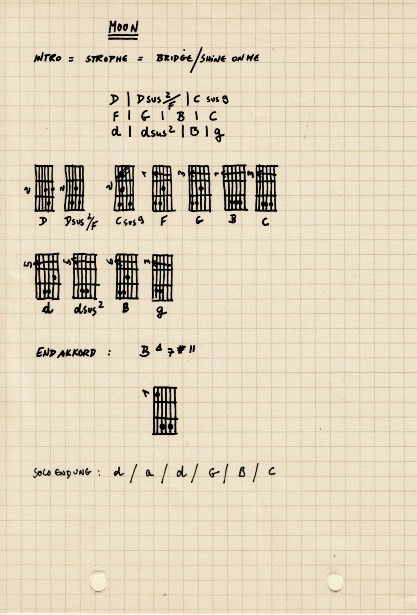 MOON
INTRO = STROPHE = BRIDGE/SHINE ON ME
D | Dsus2/F | C sus9
F | G | B | C
d | dsus2 | B | g
D Dsus2/F Csus9 F G B C
5 5 6 3
d dsus2 B g
ENDAKKORD : B Δ7#11
SOLO ENDUNG : d / a / d / G / B / C